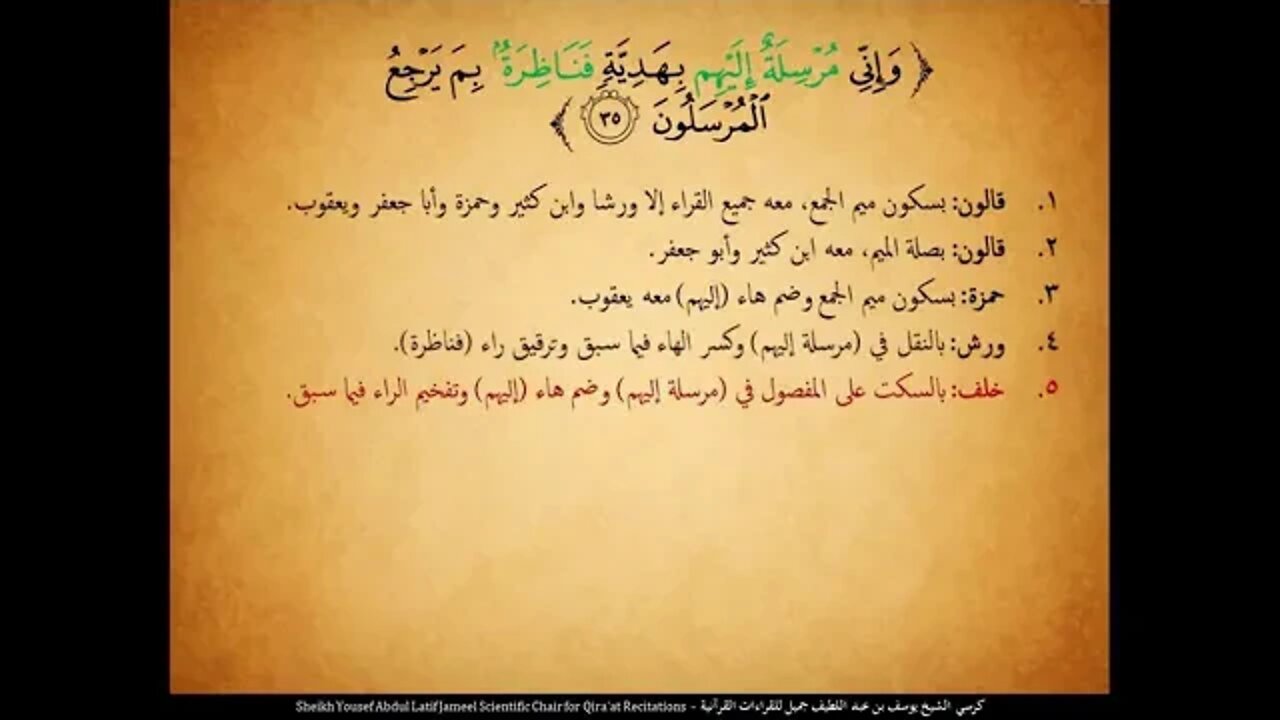 ﴿ وَإِنِّي مُرْسِلَةٌ إِلَيْهِم بِهَدِيَّةٍ فَنَاظِرَةٌۢ بِمَ يَرْجِعُ
ٱلْمُرْسَلُونَ ٣٥ ﴾
١. قالون: بسكون ميم الجمع، معه جميع القراء إلا ورشا وابن كثير وحمزة وأبا جعفر ويعقوب.
٢. قالون: بصلة الميم، معه ابن كثير وأبو جعفر.
٣. حمزة: بسكون ميم الجمع وضم هاء (إليهم) معه يعقوب.
٤. ورش: بالنقل في (مرسلة إليهم) وكسر الهاء فيما سبق وترقيق راء (فناظرة).
٥. خلف: بالسكت على المفصول في (مرسلة إليهم) وضم هاء (إليهم) وتفخيم الراء فيما سبق.
كرسي الشيخ يوسف بن عبد اللطيف جميل للقراءات القرآنية - Sheikh Yousef Abdul Latif Jameel Scientific Chair for Qira'at Recitations